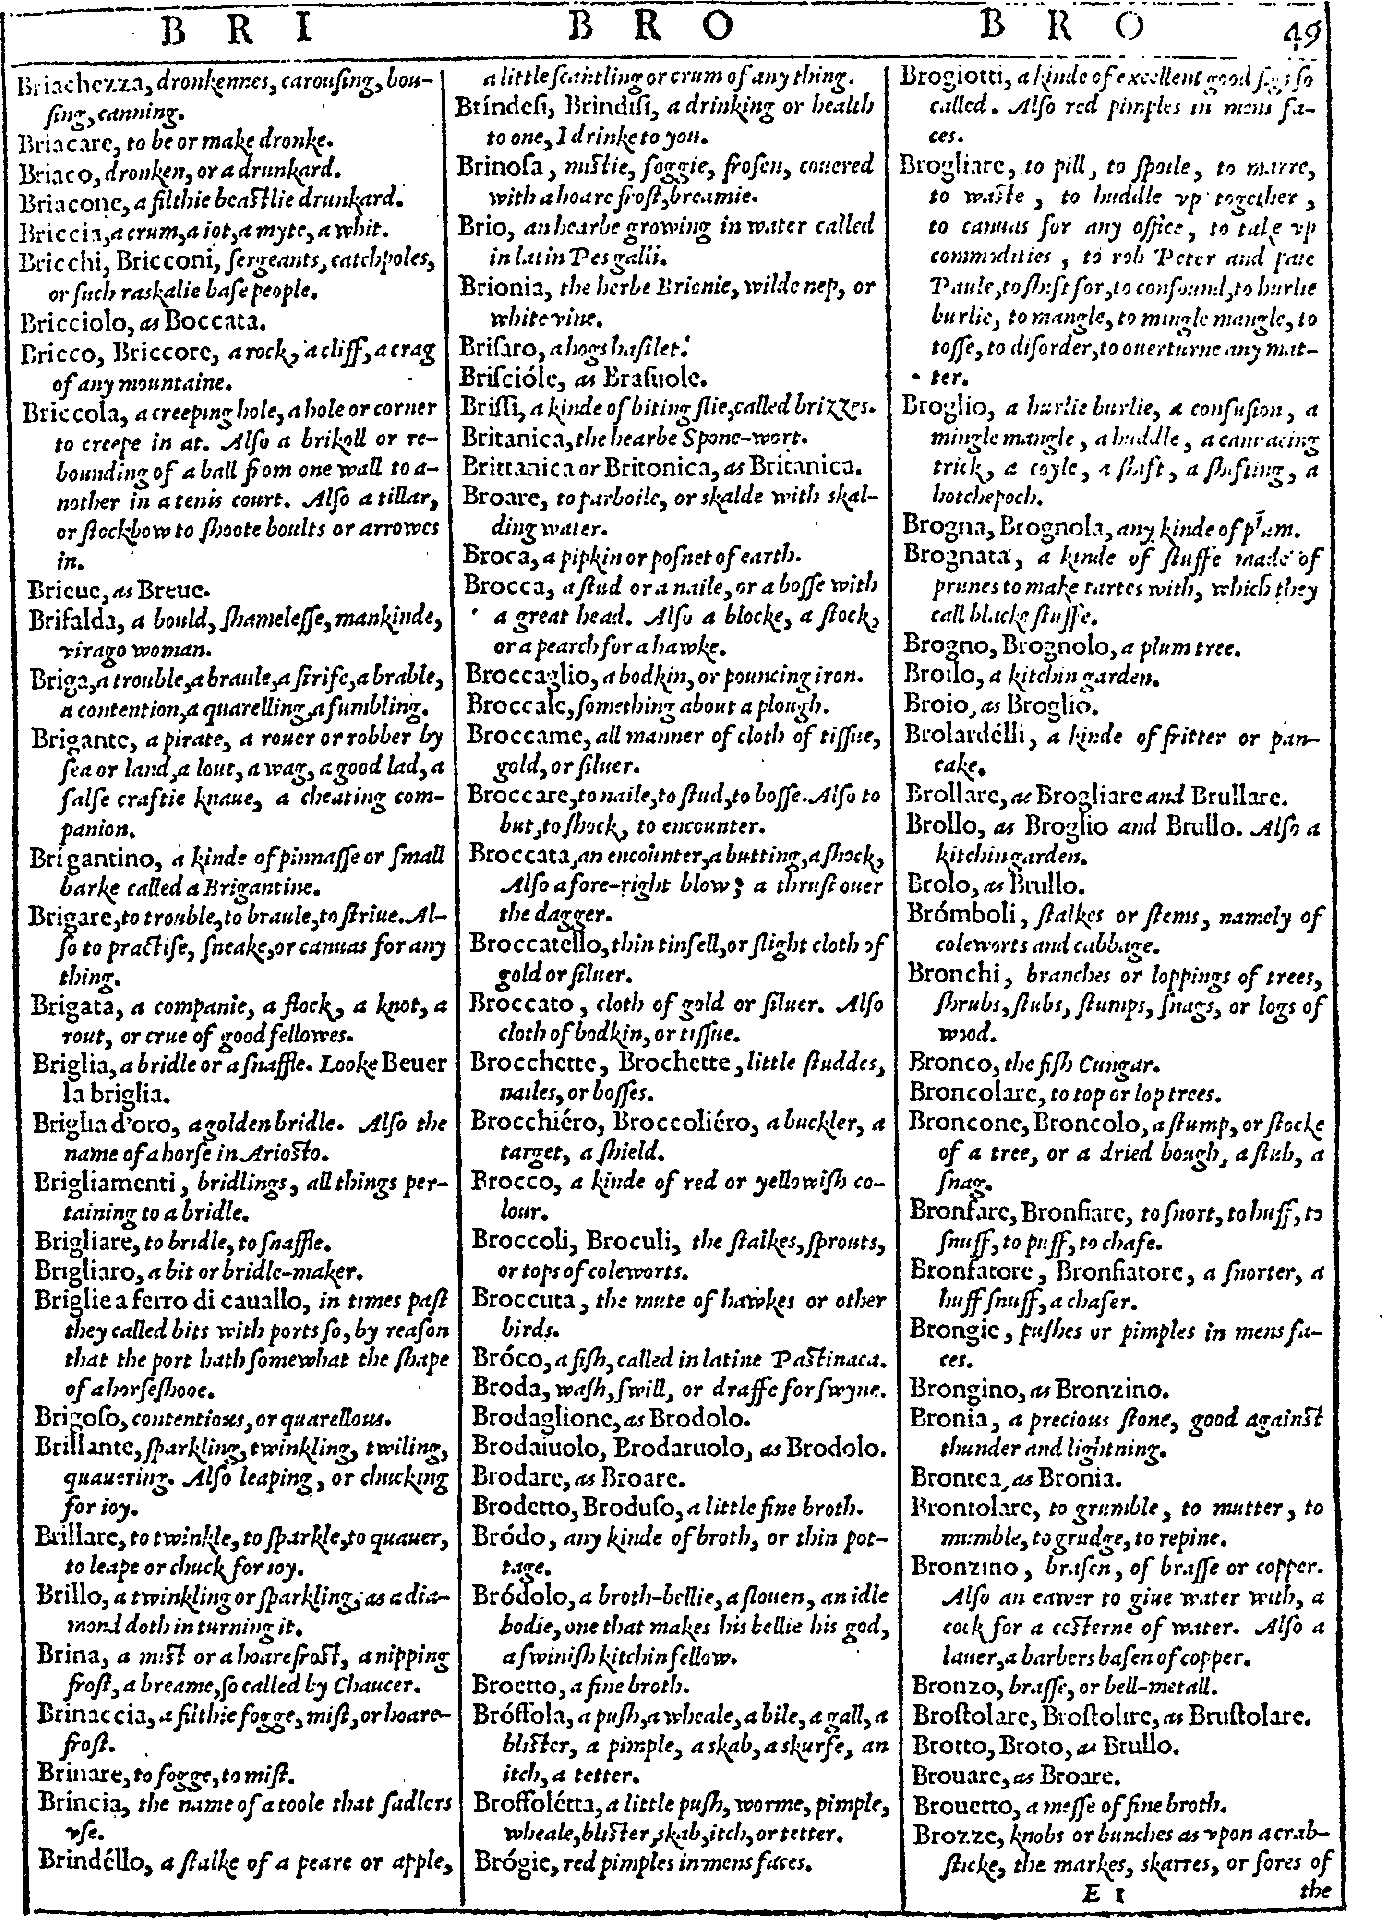 B R I
B R O
B R O
49
Briachezza, dronkennes, carousing, bou-
sing, canning.
Briacare, to be or make dronke.
Briaco, dronken, or a drunkard.
Briacone, a filthie beastlie drunkard.
Briccia, a crum, a iot, a myte, a whit.
Bricchi, Bricconi, sergeants, catchpoles,
or such raskalie base people.
Bricciolo, as Boccata.
Bricco, Briccore, a rock, a cliff, a crag
of any mountaine.
Briccola, a creeping hole, a hole or corner
to creepe in at. Also a brikoll or re-
bounding of a ball from one wall to a-
nother in a tenis court. Also a tillar,
or stockbow to shoote boults or arrowes
in.
Brieue, as Breue.
Brifalda, a bould, shamelesse, mankinde,
virago woman.
Briga, a trouble, a braule, a strife, a brable,
a contention, a quarelling, a fumbling.
Brigante, a pirate, a rouer or robber by
sea or land, a lout, a wag, a good lad, a
false craftie knaue, a cheating com-
panion.
Brigantino, a kinde of pinnasse or small
barke called a Brigantine.
Brigare, to trouble, to braule, to striue. Al-
so to practise, sneake, or canuas for any
thing.
Brigata, a companie, a flock, a knot, a
rout, or crue of good fellowes.
Briglia, a bridle or a snaffle. Looke Beuer
la briglia.
Briglia d'oro, a golden bridle. Also the
name of a horse in Ariosto.
Brigliamenti, bridlings, all things per-
taining to a bridle.
Brigliare, to bridle, to snaffle.
Brigliaro, a bit or bridle-maker.
Briglie a ferro di cauallo, in times past
they called bits with ports so, by reason
that the port hath somewhat the shape
of a horseshooe.
Brigoso, contentious, or quarellous.
Brillante, sparkling, twinkling, twiling,
quauering. Also leaping, or chucking
for ioy.
Brillare, to twinkle, to sparkle, to quauer,
to leape or chuck for ioy.
Brillo, a twinkling or sparkling, as a dia-
mond doth in turning it.
Brina, a mist or a hoare frost, a nipping
frost, a breame, so called by Chaucer.
Brinaccia, a filthie fogge, mist, or hoare-
frost.
Brinare, to fogge, to mist.
Brincia, the name of a toole that sadlers
vse.
Brindéllo, a stalke of a peare or apple,
a little scantling or crum of any thing.
Bríndesi, Brindisi, a drinking or health
to one, I drinke to you.
Brinosa, mistie, foggie, frosen, couered
with a hoare frost, breamie.
Brio, an hearbe growing in water called
in latin Pes galli.
Brionia, the herbe Brionie, wilde nep, or
white vine.
Brisaro, a hogs haslet.
Briscióle, as Brasuole.
Brissi, a kinde of biting flie, called brizzes.
Britanica, the hearbe Spone-wort.
Brittanica or Britonica, as Britanica.
Broare, to parboile, or skalde with skal-
ding water.
Broca, a pipkin or posnet of earth.
Brocca, a stud or a naile, or a bosse with
a great head. Also a blocke, a stock,
or a pearch for a hawke.
Broccaglio, a bodkin, or pouncing iron.
Broccale, something about a plough.
Broccame, all manner of cloth of tissue,
gold, or siluer.
Broccare, to naile, to stud, to bosse. Also to
but, to shock, to encounter.
Broccata, an encounter, a butting, a shock,
Also a fore-right blow; a thrust ouer
the dagger.
Broccatello, thin tinsell, or slight cloth of
gold or siluer.
Broccato, cloth of gold or siluer. Also
cloth of bodkin, or tissue.
Brocchette, Brochette, little studdes,
nailes, or bosses.
Brocchiéro, Broccoliéro, a buckler, a
target, a shield.
Brocco, a kinde of red or yellowish co-
lour.
Broccoli, Broculi, the stalkes, sprouts,
or tops of coleworts.
Broccuta, the mute of hawkes or other
birds.
Bróco, a fish, called in latine Pastinaca.
Broda, wash, swill, or draffe for swyne.
Brodaglione, as Brodolo.
Brodaiuolo, Brodaruolo, as Brodolo.
Brodare, as Broare.
Brodetto, Broduso, a little fine broth.
Bródo, any kinde of broth, or thin pot-
tage.
Bródolo, a broth-bellie, a slouen, an idle
bodie, one that makes his bellie his god,
a swinish kitchin fellow.
Broetto, a fine broth.
Bróffola, a push, a wheale, a bile, a gall, a
blister, a pimple, a skab, a skurfe, an
itch, a tetter.
Broffolétta, a little push, worme, pimple,
wheale, blister, skab, itch, or tetter.
Brógie, red pimples in mens faces.
Brogiotti, a kinde of excellent good figs so
called. Also red pimples in mens fa-
ces.
Brogliare, to pill, to spoile, to marre,
to waste, to huddle vp together,
to canuas for any office, to take vp
commodities, to rob Peter and paie
Paule, to shift for, to confound, to hurlie
burlie, to mangle, to mingle mangle, to
tosse, to disorder, to ouerturne any mat-
ter.
Broglio, a hurlie burlie, a confusion, a
mingle mangle, a huddle, a canuacing
trick, a coyle, a shift, a shifting, a
hotchepoch.
Brogna, Brognola, any kinde of plum.
Brognata, a kinde of stuffe made of
prunes to make tartes with, which they
call blacke stuffe.
Brogno, Brognolo, a plum tree.
Broilo, a kitchin garden.
Broio, as Broglio.
Brolardélli, a kinde of fritter or pan-
cake.
Brollare, as Brogliare and Brullare.
Brollo, as Broglio and Brullo. Also a
kitchin garden.
Brolo, as Brullo.
Brómboli, stalkes or stems, namely of
coleworts and cabbage.
Bronchi, branches or loppings of trees,
shrubs, stubs, stumps, snags, or logs of
wood.
Bronco, the fish Cungar.
Broncolare, to top or lop trees.
Broncone, Broncolo, a stump, or stocke
of a tree, or a dried bough, a stub, a
snag.
Bronfare, Bronfiare, to snort, to huff, to
snuff, to puff, to chafe.
Bronfatore, Bronfiatore, a snorter, a
huff snuff, a chafer.
Brongie, pushes or pimples in mens fa-
ces.
Brongino, as Bronzino.
Bronia, a precious stone, good against
thunder and lightning.
Brontea, as Bronia.
Brontolare, to grumble, to mutter, to
mumble, to grudge, to repine.
Bronzino, brasen, of brasse or copper.
Also an eawer to giue water with, a
cock for a cesterne of water. Also a
lauer, a barbers basen of copper.
Bronzo, brasse, or bell-metall.
Brostolare, Brostolire, as Brustolare.
Brotto, Broto, as Brullo.
Brouare, as Broare.
Brouetto, a messe of fine broth.
Brozze, knobs or bunches as vpon a crab-
sticke, the markes, skarres, or sores of
E 1
the